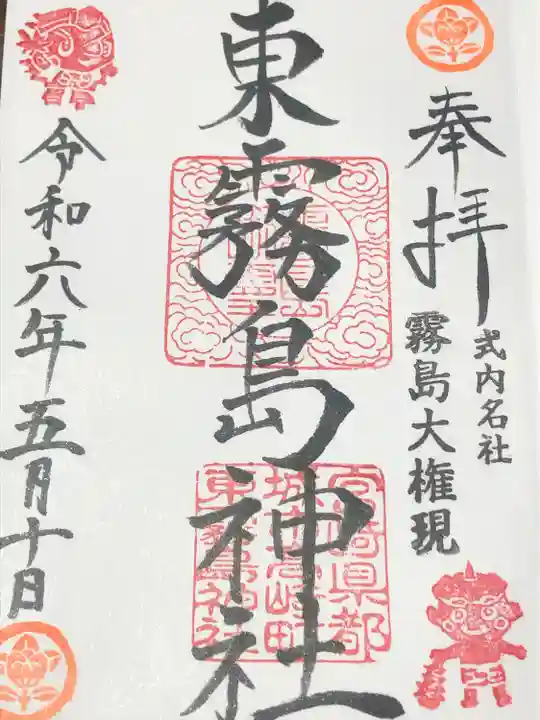 奉拝
式内名社
霧島大権現
東霧島神社
宮崎県都
城市高崎町
東霧島神社
令和六年五月十日